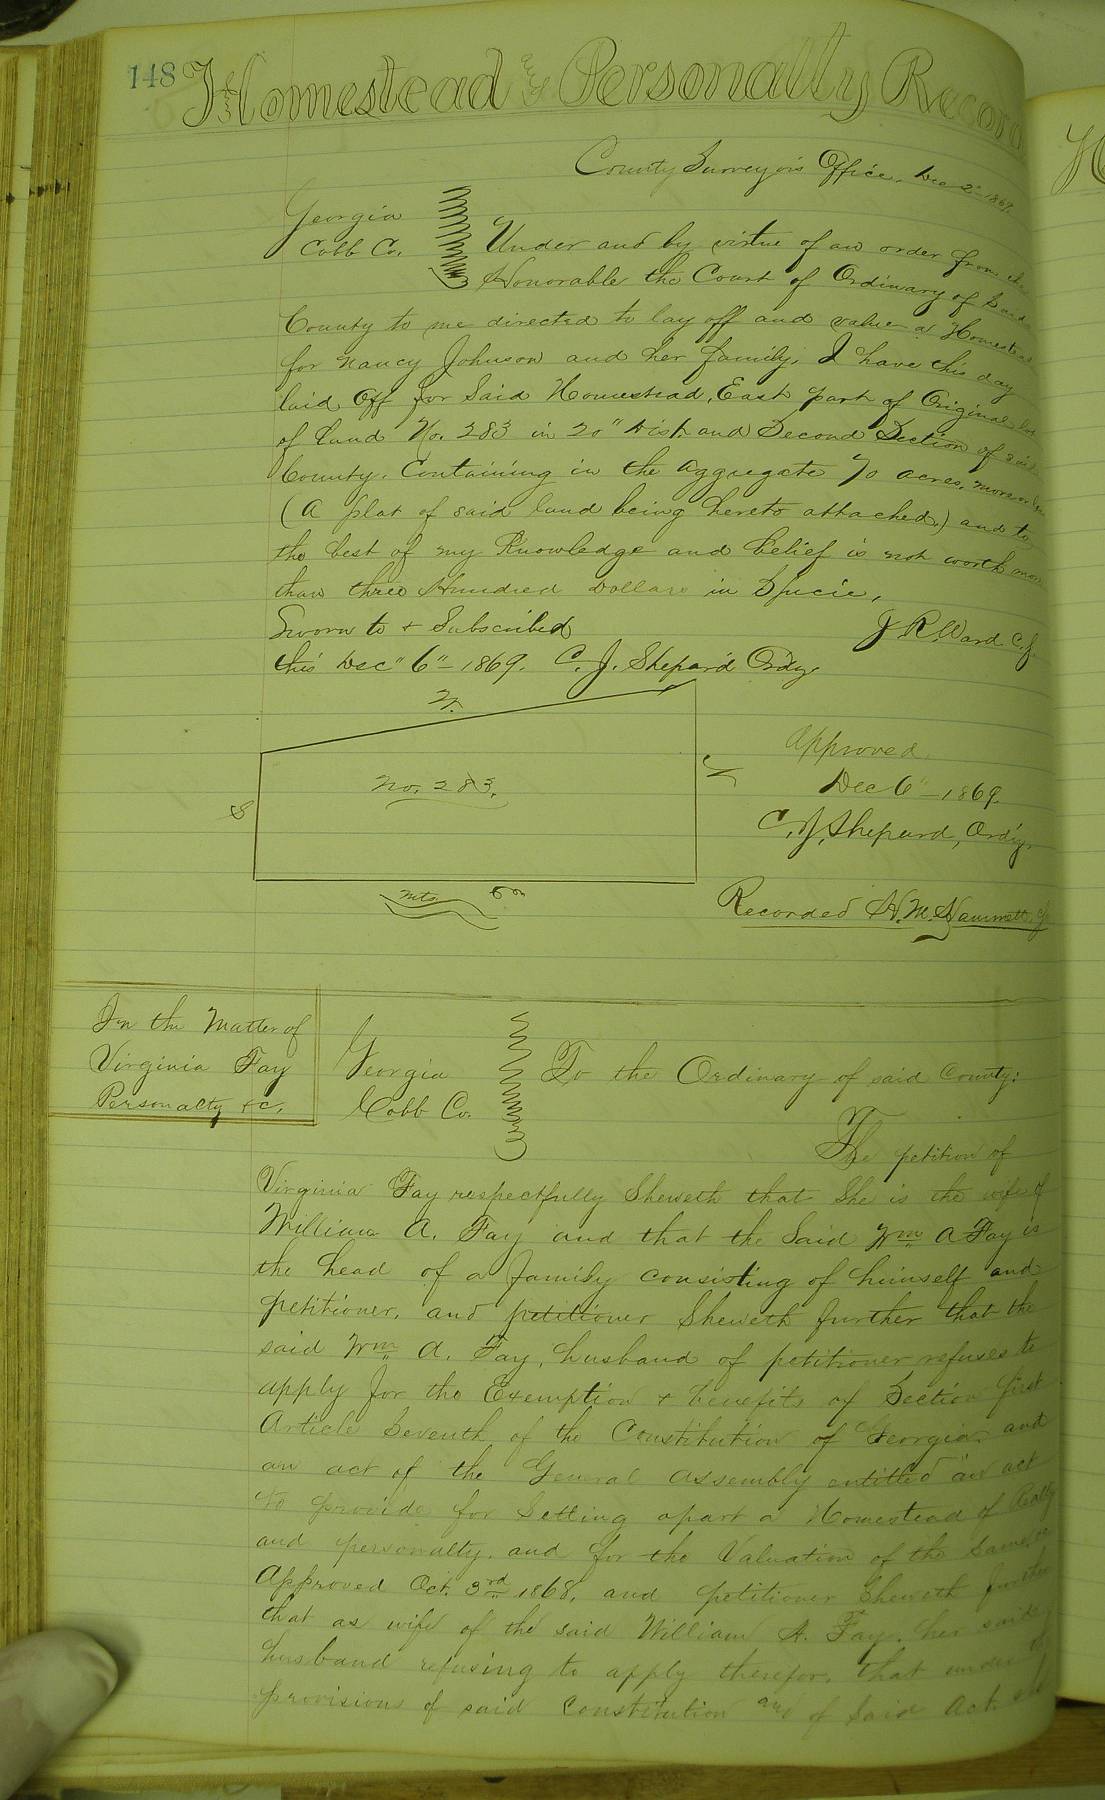 148 Homestead and Personalty Record
County Surveyor's Office, Dec 2" 1869.
Georgia
Cobb Co.
Under and by virtue of an order from the
Honorable the Court of Ordinary of Said
County to me directed to lay off and value a Homestead
for Nancy Johnson and her family, I have this day
laid Off for Said Homestead, East part of Original lot
of land No. 283 in 20" Dist. and Second Section of said
County. Containing in the aggregate 70 acres, more or less
(A plat of said land being hereto attached.) and to
the best of my Knowledge and belief is not worth more
than three Hundred Dollars in Specie,
Sworn to + Subscribed
J. R. Ward. C.S.
this Dec" 6" 1869. C. J. Shepard Ord'y
N.
No. 283.
S
Approved
Dec 6" 1869.
C. J. Shepard, Ord'y.
Recorded H. M. Hammett,
In the Matter of
Virginia Fay
Personalty +c.
Georgia
Cobb Co.
To the Ordinary of said County:
The petition of
Virginia Fay respectfully Sheweth that She is the wife of
William A. Fay and that the Said Wm A Fay is
the head of a family consisting of himself and
petitioner, and petitioner Sheweth further that the
said Wm A. Fay, husband of petitioner refuses to
apply for the Exemption + benefits of Section first
Article Seventh of the Constitution of Georgia, and
an act of the General Assembly entitled "an act
to provide for Setting apart a Homestead of Realty
and personalty, and for the Valuation of the Same,
Approved Oct. 3rd 1868, and petitioner Sheweth further
that as wife of the said William A. Fay, her said
husband refusing to apply therefor, that under the
provisions of said Constitution and of Said Act